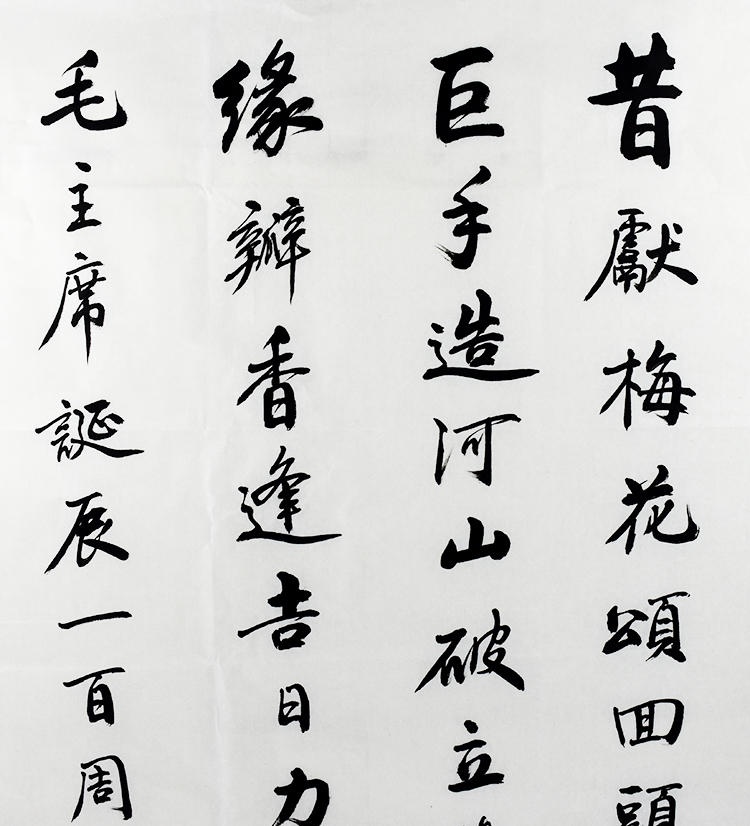 昔獻梅花頌回頭
巨手造河山破立
緣瓣香逢吉日力
毛主席誕辰一百周